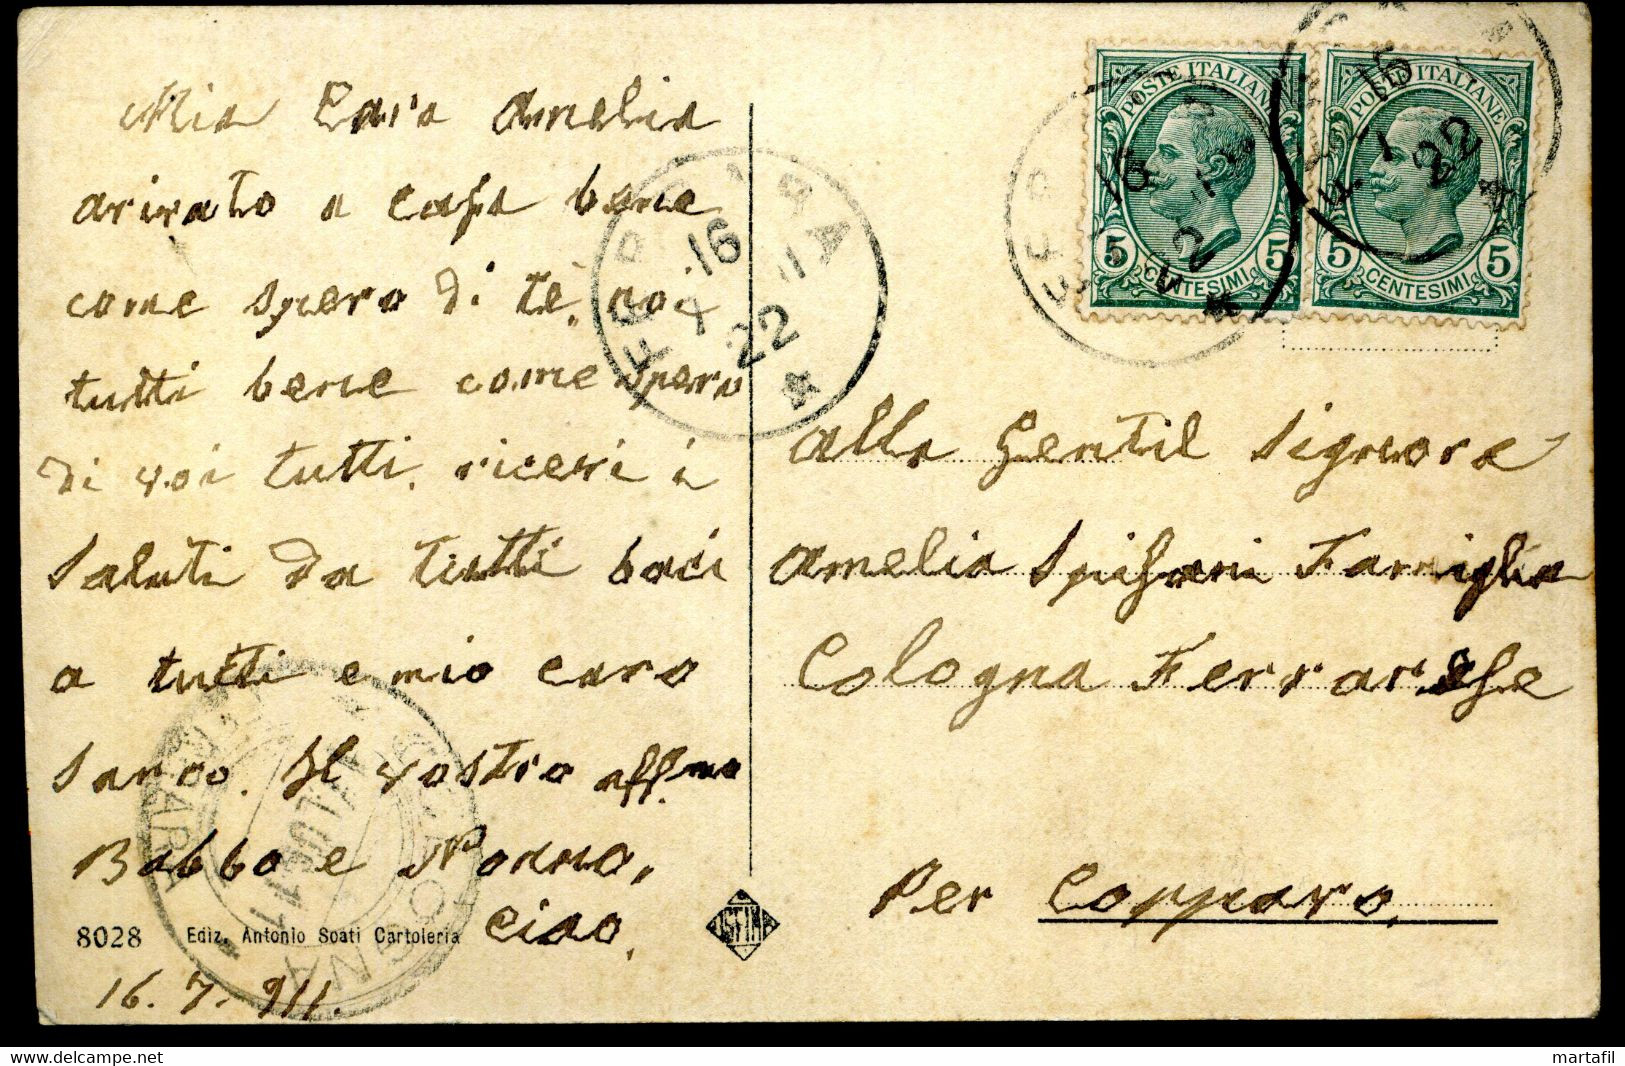 Mia Cara Amelia
arivato a casa bene
come spero di te, noi
tutti bene come spero
di voi tutti, ricevi i
saluti da tutti baci
a tutti e mio caro
Il vostro affmo
Babbo e Nonno,
ciao,
16. 7. 911.
8028 Ediz. Antonio Soati Cartoleria
FERRARA
16
7 11
22
POSTE ITALIANE
5 CENTESIMI 5
POSTE ITALIANE
5 CENTESIMI 5
alla Gentil Signora
Amelia Spisani Famiglia
Cologna Ferrarese
Per Copparo.
martafil